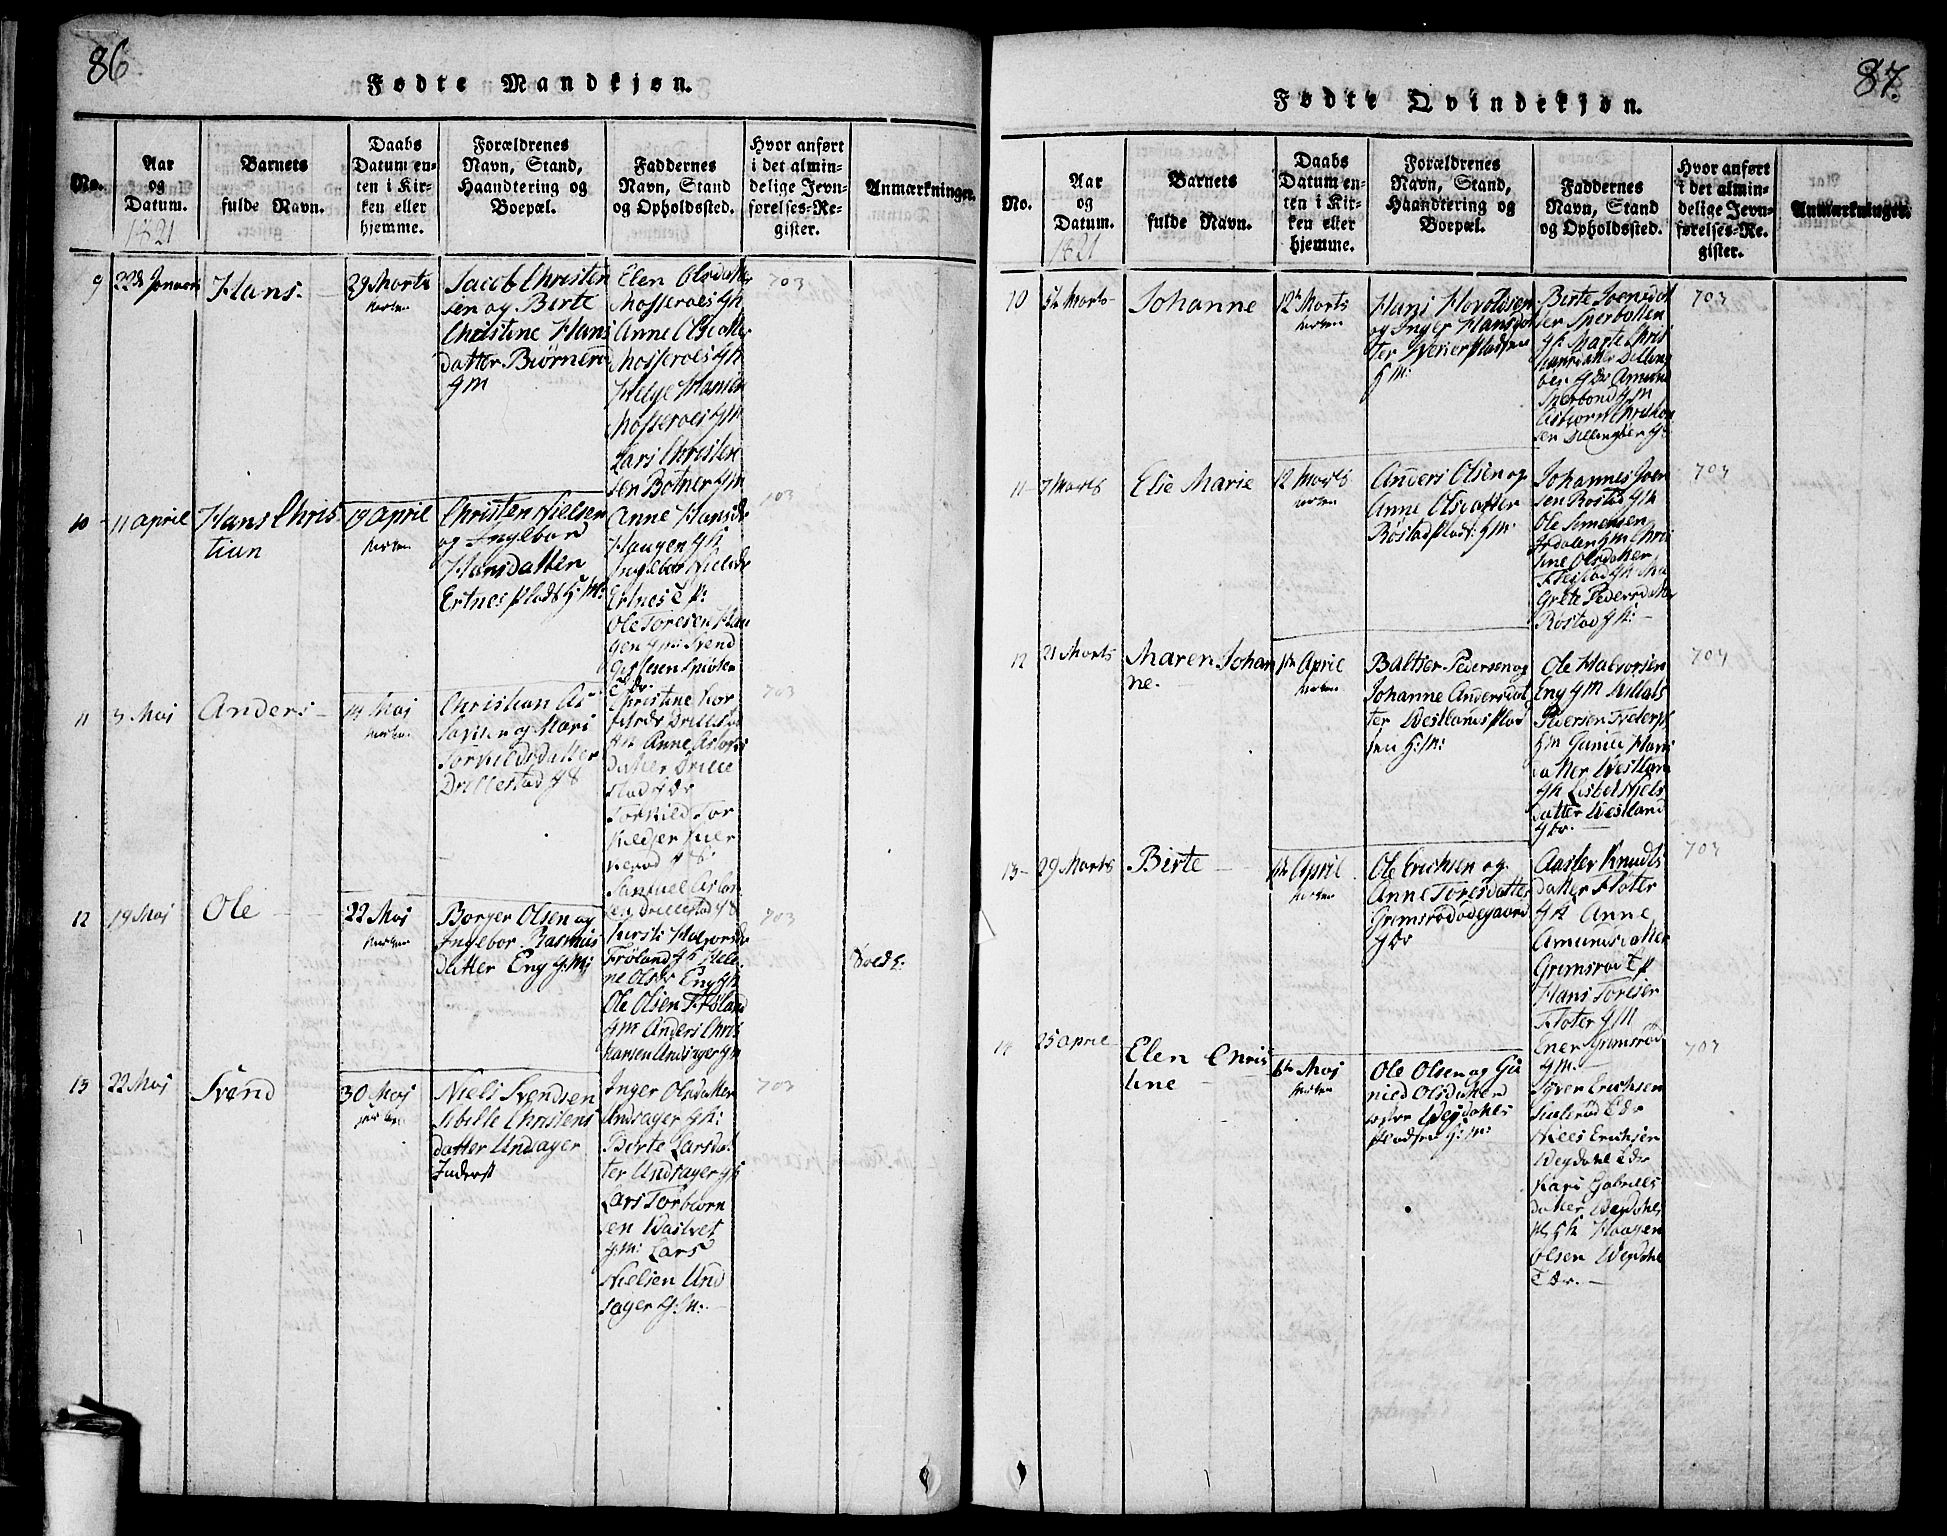 86
Fødte Mandkjøn.
No.
Aar
og
Datum.
1821
Barnets
fulde Navn.
Daabs
Datum en-
ten i Kir-
ken eller
hjemme.
Forældrenes
Navn, Stand,
Haandtering og
Boepæl.
Faddernes
Navn, Stand
og Opholdssted.
Hvor anført
i det almin-
delige Jevn-
førelses-Re-
gister.
Anmærkninger.
9
22de Januari
Hans.
29 Marts
kirken
Jacob Christen
sen og Birte
Christine Hans
datter Biørnerø
GM
Elen Olsdatter
Mosseroes GK
Anne Olsdatter
Mosseroes GK
Helge Hansen
Mosseroes GM
Lars Christen
sen Botner GM
703
10
11 April
Hans Chris
tian
19 April
kirken
Christen Nielsen
og Ingebor
Hansdatter
Ertnes plads G:M:
Anne Hansdr
Haugen GK
Ingebor Nielsdr
Ertnes T P:
Ole Toresen Hau
gen GM: Svend
T Dr.
703
11
3 Maj
Anders
14 Maj
kirken
Christian As
og Mari
Torkildsdatter
Drillestad GB
Christine Tor
GK Anne
datter Drille
stad GDr
Torkild Tor
kildsen
Samuel
Drillestad GB
703
12
19 Maj
Ole
22 Maj
kirken
Borger Olsen og
Ingebor Rasmus
datter Eng G:M:
Kirsti Halvorsdr
Frøland GK Hele
ne Olsdr Eng GK
Ole Olsen Frøland
GM Anders Chris
tiansen Undsager GM
703
13
22 Maj
Svend
30 Maj
kirken
Niels Svendsen
Sibille Christens
datter Undsager
Inderst
Inger Olsdatter
Undsager GK:
Birte Larsdat
ter Undsager GK
Lars Torbiørn
sen Wastvet
G:M: Lars
Nielsen Und
sager G:M:
703
87.
Fødte Qvindekjøn.
No.
Aar
og
Datum.
1821
Barnets
fulde Navn.
Daabs
Datum en-
ten i Kir-
ken eller
hjemme.
Forældrenes
Navn, Stand,
Haandtering og
Boepæl.
Faddernes
Navn, Stand
og Opholdssted.
Hvor anført
i det almin-
delige Jevn-
førelses-Re-
gister.
Anmærkninger.
10
5te Marts
Johanne
12te Marts
kirken
Hans Hovoldsen
og Inger Hansdat
ter Werierpladsen
G M:
Birte Svensdat
ter Sperbotten
GK Marte Chris
tiansdatter Dilling
GDr Amund
Sperbond GM
Asbiørn Christian
sen Dillingøen GB
703
11
7 Marts
Else Marie
12 Marts
kirken
Anders Olsen og
Anne Olsdatter
Røstad plads: GM
Johannes Iver
sen Røstad GM
Ole Simensen
Ardalen GM Chris
tine Olsdatter
GK Ma
grete Pedersdatter
Røstad GK:
703
12
21 Marts
Maren Johan
ne.
1te April
kirken
Baltser Pedersen og
Johanne Andersdat
ter Westlands plad
sen G:M:
Ole Halvorsen
Eng GM
Pedersen
GM Gunild Hans
datter Westland
GK Lisbet Niels
datter Westland
GDr.
703
13
29 Marts
Birte
1te April
kirken
Ole Erichsen og
Anne Toresdatter
Grimsrød ødegaard
GDr
Aaster Knudts
datter Floter
GK Anne
Amundsdatter
Grimsrød T P
Hans Toresen
Floter GM
Ener Grimsrød
GM.
703
14
25 April
Elen Chris
tine
6te Maj
kirken
Ole Olsen og Gu
nild Olsdatter
Wejdahls
pladsen G:M:
Iver Erichsen
T Dr
Niels Erichsen
Wejdahl T Dr
Kari Gabriels
datter Wejdahls
pl GK Haagen
Olsen Wejdahl
T Dr.
703